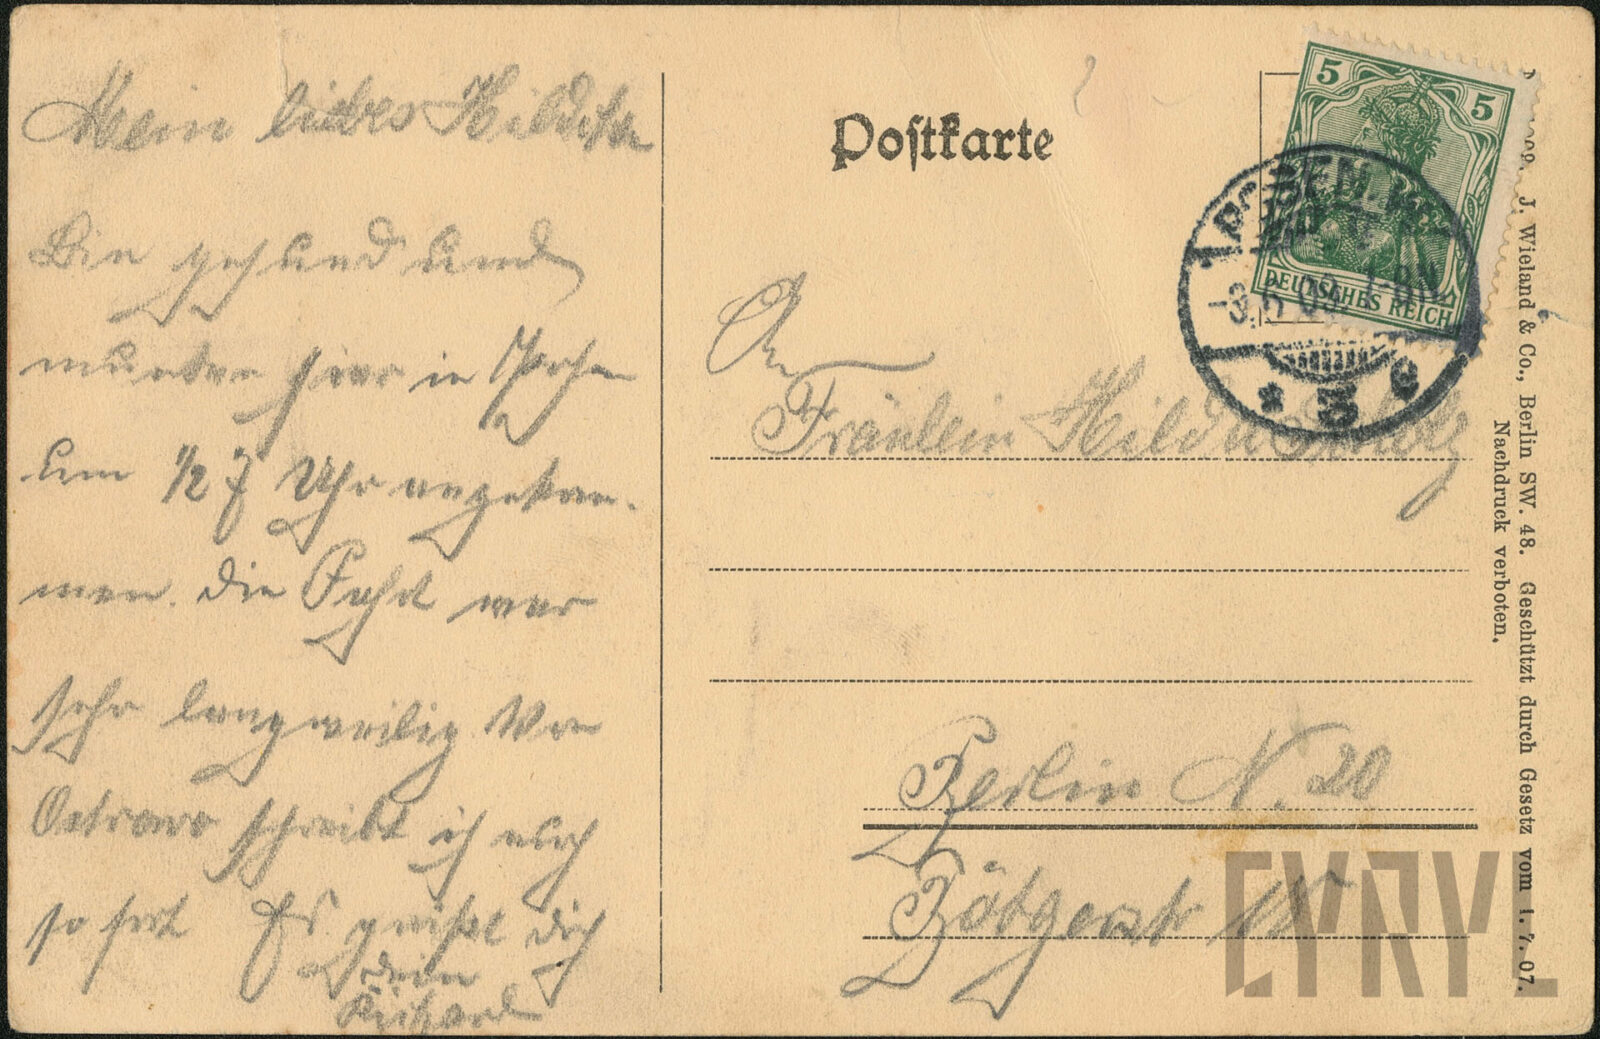 Mein liebes Hildchen
Bin gesund und
munter hier in Posen
um 1/2 7 Uhr angekom-
men. Die Fahrt war
sehr langweilig. Von
Ostrowo schreibe ich auch
sofort Es grüßt Dich
Dein
Richard
Postkarte
5 5
DEUTSCHES REICH
POSEN
3
An
Fräulein Hilde Scholz
Berlin N. 20
J. Wieland & Co., Berlin SW. 48. Geschützt durch Gesetz vom 1. 7. 07.
Nachdruck verboten.
CYRYL